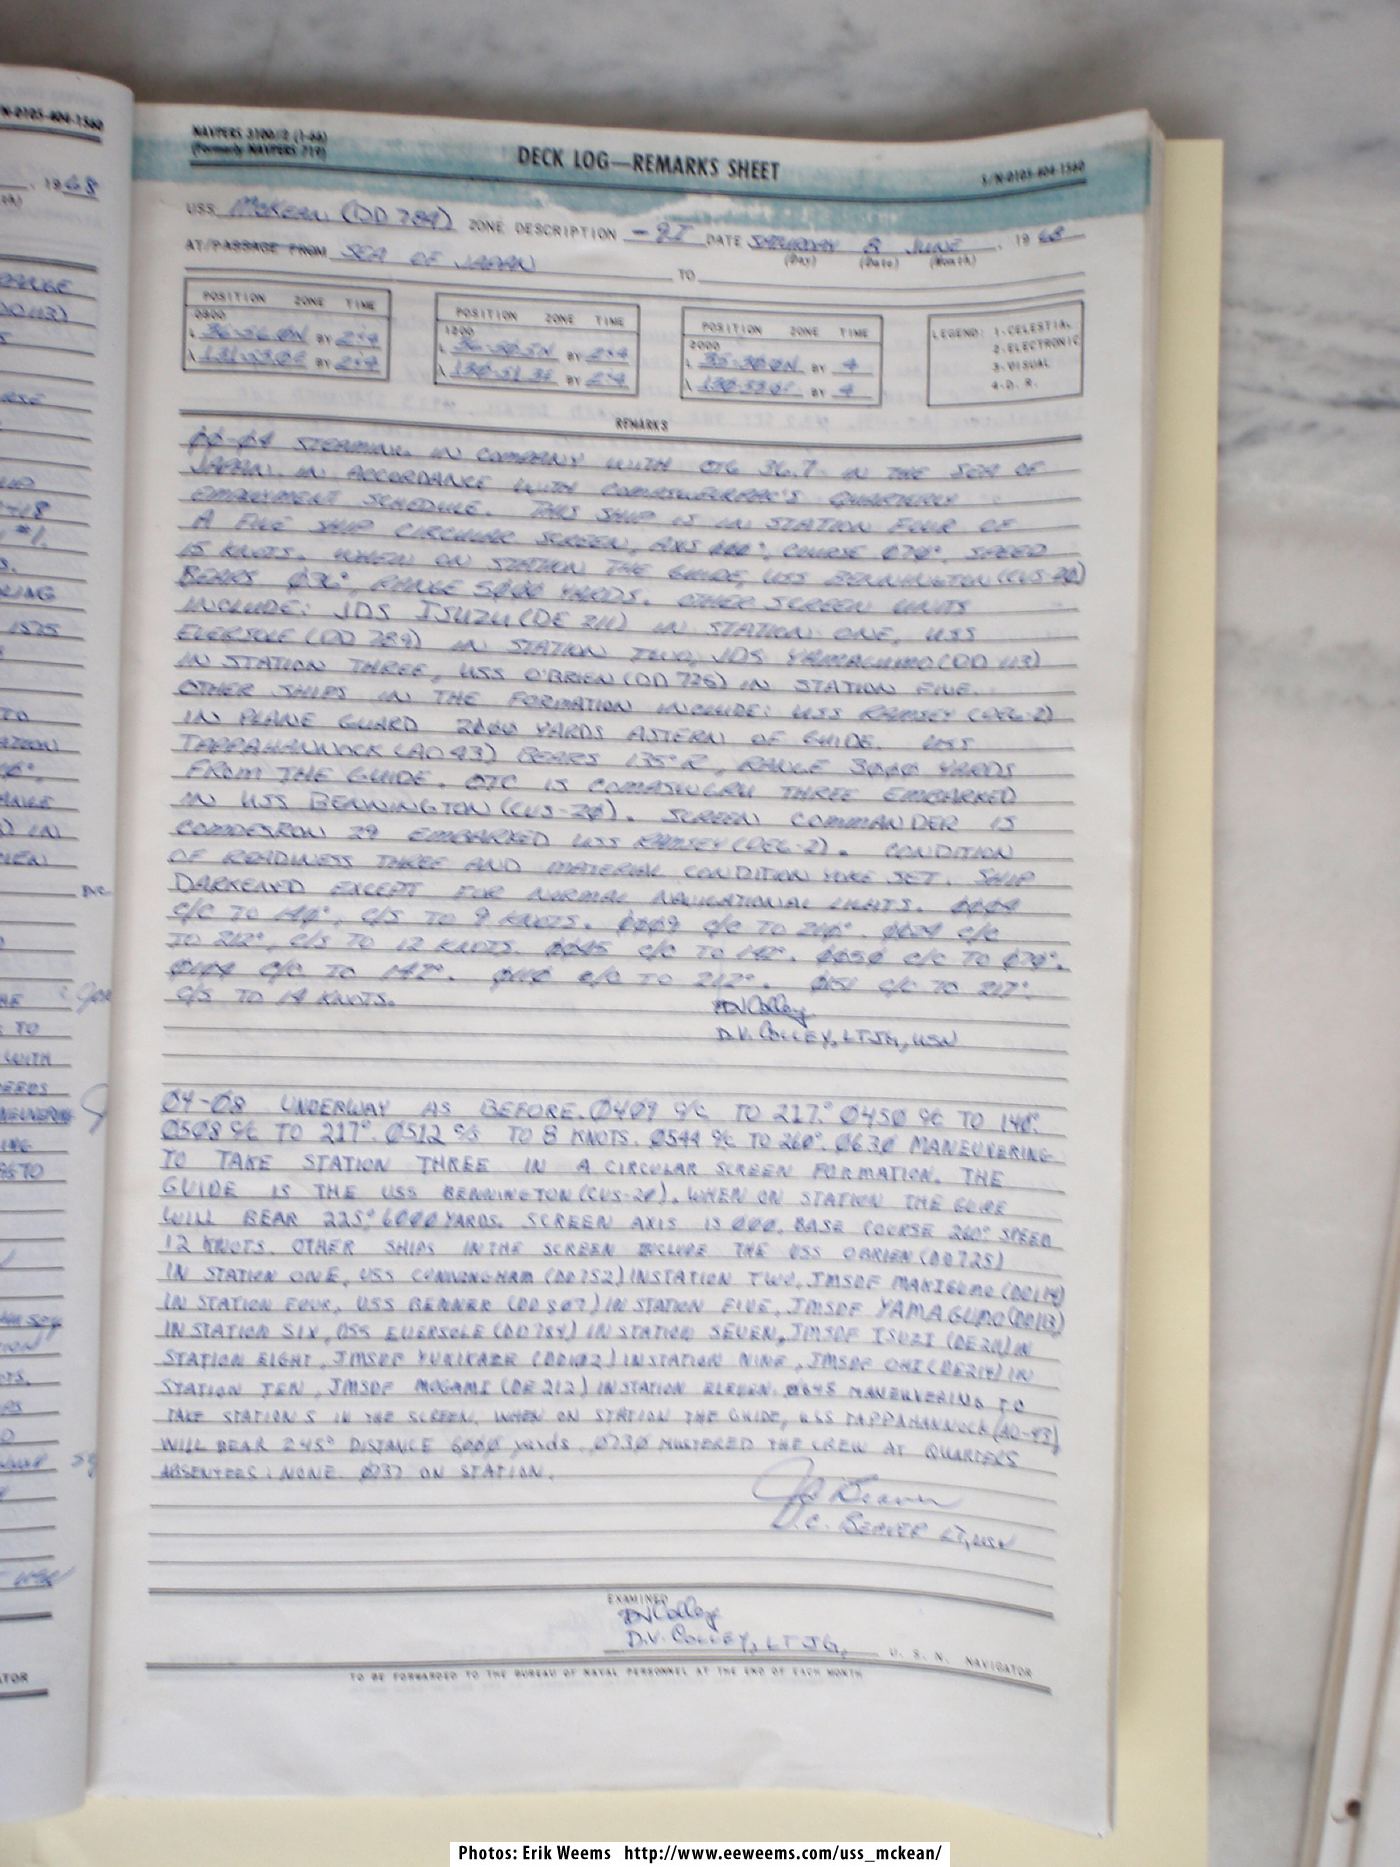 NAVPERS 3100/2 (1-66)
(Formerly NAVPERS 719)
DECK LOG—REMARKS SHEET
S/N-0105-404-1560
USS McKEAN (DD 784) ZONE DESCRIPTION -9I DATE SATURDAY 8 JUNE, 1968
(Day) (Date) (Month)
AT/PASSAGE FROM SEA OF JAPAN TO
POSITION ZONE TIME
0800
L 36-56.0N BY 2+4
λ 131-53.0E BY 2+4
POSITION ZONE TIME
1200
L 36-50.5N BY 2+4
λ 130-51.3E BY 2+4
POSITION ZONE TIME
2000
L 35-30.0N BY 4
λ 130-53.0E BY 4
LEGEND: 1-CELESTIAL
2-ELECTRONIC
3-VISUAL
4-D.R.
REMARKS
00-04 STEAMING IN COMPANY WITH CTG 36.7 IN THE SEA OF
JAPAN IN ACCORDANCE WITH COMASWFORPAC'S QUARTERLY
EMPLOYMENT SCHEDULE. THIS SHIP IS IN STATION FOUR OF
A FIVE SHIP CIRCULAR SCREEN, AXIS 000°, COURSE 070°, SPEED
15 KNOTS. WHEN ON STATION THE GUIDE, USS BENNINGTON (CVS-20)
BEARS 036°, RANGE 5000 YARDS. OTHER SCREEN UNITS
INCLUDE: JDS ISUZU (DE 211) IN STATION ONE, USS
EVERSOLE (DD 789) IN STATION TWO, JDS YAMAGUMO (DD 113)
IN STATION THREE, USS O'BRIEN (DD 725) IN STATION FIVE.
OTHER SHIPS IN THE FORMATION INCLUDE: USS RAMSEY (DEG-2)
IN PLANE GUARD 2000 YARDS ASTERN OF GUIDE. USS
TAPPAHANNOCK (AO 43) BEARS 135°R, RANGE 3000 YARDS
FROM THE GUIDE. OTC IS COMASWGRU THREE EMBARKED
IN USS BENNINGTON (CVS-20). SCREEN COMMANDER IS
COMDESRON 29 EMBARKED USS RAMSEY (DEG-2). CONDITION
OF READINESS THREE AND MATERIAL CONDITION YOKE SET. SHIP
DARKENED EXCEPT FOR NORMAL NAVIGATIONAL LIGHTS. 0004
C/C TO 140°, C/S TO 9 KNOTS. 0009 C/C TO 210°. 0029 C/C
TO 212°, C/S TO 12 KNOTS. 0045 C/C TO 142°. 0050 C/C TO 070°.
0104 C/C TO 142°. 0110 C/C TO 212°. 0151 C/C TO 217°.
C/S TO 14 KNOTS.
DV Colley
D.V. COLLEY, LTJG, USN
04-08 UNDERWAY AS BEFORE. 0409 C/C TO 217°. 0450 C/C TO 140°.
0508 C/C TO 217°. 0512 C/S TO 8 KNOTS. 0544 C/C TO 260°. 0630 MANEUVERING
TO TAKE STATION THREE IN A CIRCULAR SCREEN FORMATION. THE
GUIDE IS THE USS BENNINGTON (CVS-20). WHEN ON STATION THE GUIDE
WILL BEAR 225°, 6000 YARDS. SCREEN AXIS IS 000. BASE COURSE 260° SPEED
12 KNOTS. OTHER SHIPS IN THE SCREEN INCLUDE THE USS OBRIEN (DD725)
IN STATION ONE, USS CUNNINGHAM (DD752) IN STATION TWO, JMSDF MAKIGUMO (DD114)
IN STATION FOUR, USS BENNER (DD 807) IN STATION FIVE, JMSDF YAMAGUMO (DD113)
IN STATION SIX, USS EVERSOLE (DD789) IN STATION SEVEN, JMSDF ISUZI (DE211) IN
STATION EIGHT, JMSDF YUKIKAZE (DD102) IN STATION NINE, JMSDF OHI (DE214) IN
STATION TEN, JMSDF MOGAMI (DE 212) IN STATION ELEVEN. 0645 MANEUVERING TO
TAKE STATIONS IN THE SCREEN. WHEN ON STATION THE GUIDE, USS TAPPAHANNOCK (AO-43)
WILL BEAR 245° DISTANCE 6000 yards. 0730 MUSTERED THE CREW AT QUARTERS
ABSENTEES: NONE. 0737 ON STATION.
J.C. BEAVER LT, USN
EXAMINED
DV Colley
D.V. COLLEY, LTJG, U. S. N. NAVIGATOR
TO BE FORWARDED TO THE BUREAU OF NAVAL PERSONNEL AT THE END OF EACH MONTH
Photos: Erik Weems http://www.eeweems.com/uss_mckean/